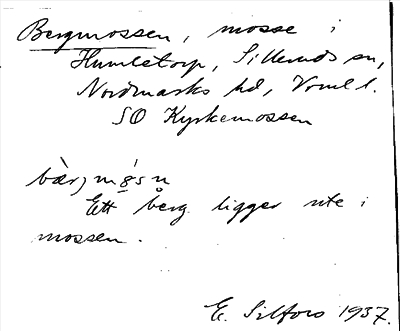 Bergmossen, mosse i
Humletorp, Silleruds sn,
Nordmarks hd, Vrml l.
SO Kyrkemossen
bær,j m
Ett berg ligger ute i
mossen.
E. Silfors 1937.